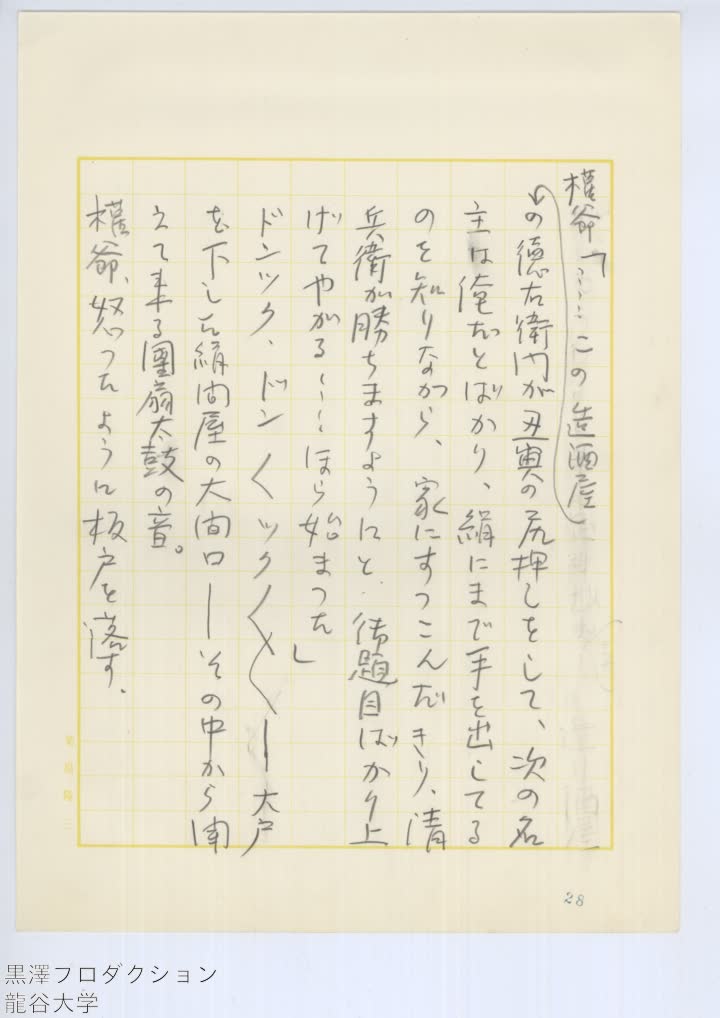 権爺「……この造酒屋
の徳右衛門が丑寅の尻押しをして、次の名
主は俺だとばかり、絹にまで手を出してる
のを知りながら、家にすつこんだきり、清
兵衛が勝ちますようにと、御題目ばかり上
げてやがる……ほら始まつた」
ドンツク、ドン〱ツク〱〱―大戸
を下した絹問屋の大間口―その中から聞
えて来る團扇太鼓の音。
権爺、怒つたように板戸を落す、
28
黒澤プロダクション
龍谷大学